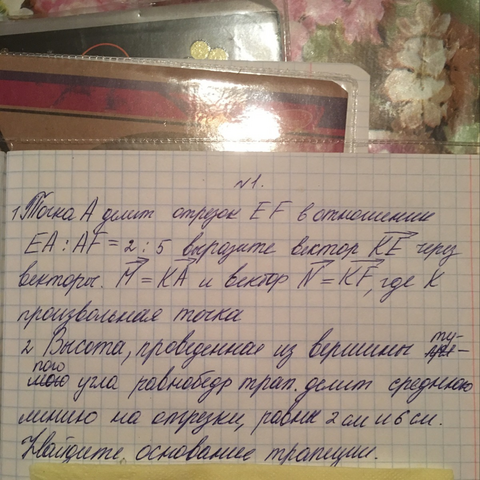 №1.
1. Точка А делит отрезок EF в отношении
EA : AF = 2 : 5 выразите вектор KE через
векторы. M = KA и вектор N = KF, где K
произвольная точка
2 Высота, проведенная из вершины ту-
пого угла равнобедр трап. делит среднюю
линию на отрезки, равны 2 см и 6 см.
Найдите, основание трапеции.